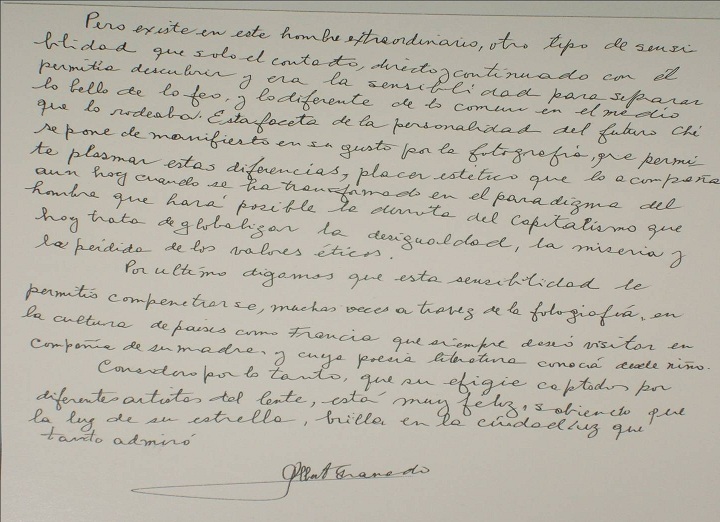 Pero existe en este hombre extraordinario, otro tipo de sensi
bilidad que solo el contacto, directo y continuado con él
permitía descubrir y era la sensibilidad para separar
lo bello de lo feo, y lo diferente de lo comun en el medio
que lo rodeaba. Esta faceta de la personalidad del futuro Ché
se pone de manifiesto en su gusto por la fotografía, que permi
te plasmar estas diferencias, placer estético que lo acompaña
aun hoy cuando se ha transformado en el paradizma del
hombre que hará posible la derrota del capitalismo que
hoy trata de globalizar la desigualdad, la miseria y
la pérdida de los valores éticos.
Por ultimo digamos que esta sensibilidad le
permitió compenetrarse, muchas veces a travez de la fotografía, en
la cultura de países como Francia que siempre deseó visitar en
compañia de su madre, y cuya poesia literatura conociá desde niño.
Considero por lo tanto, que su efigie captada por
diferentes artistas del lente, está muy feliz, sabiendo que
la luz de su estrella, brilla en la ciudad luz que
tanto admiró
Albert Granado